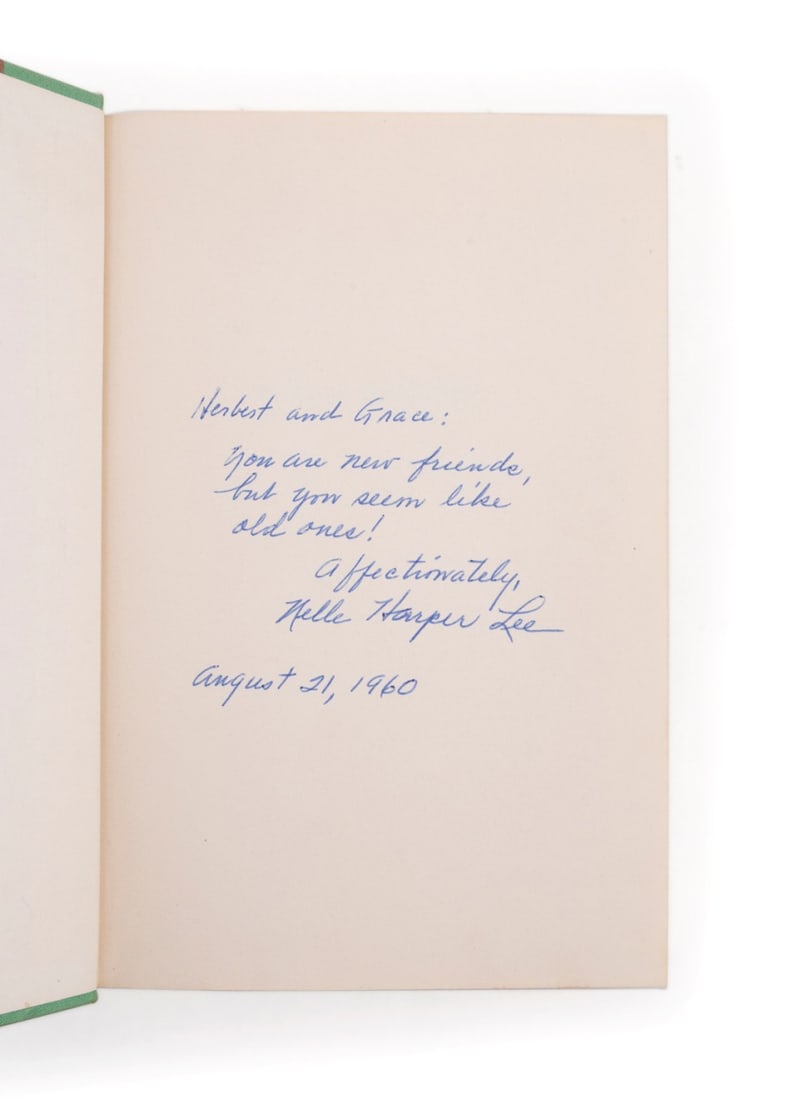 Herbert and Grace:
You are new friends,
but you seem like
old ones!
Affectionately,
Nelle Harper Lee
August 21, 1960